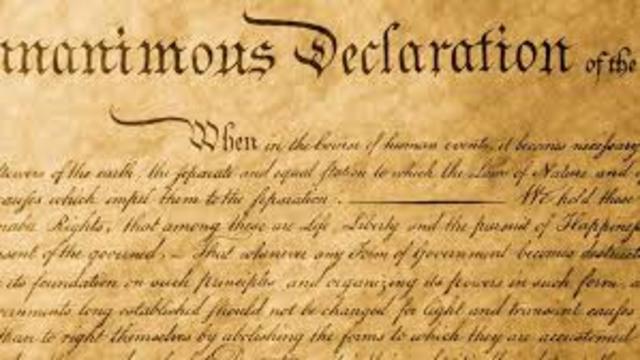 nanimous Declaration of the
When in the Course of human events, it becomes necessary
powers of the earth, the separate and equal station to which the Laws of Nature and
causes which impel them to the separation. We hold these
nable Rights, that among these are Life, Liberty and the pursuit of Happiness
sent of the governed, — That whenever any Form of Government becomes destructi
its foundation on such principles and organizing its powers in such form, as
vernments long established should not be changed for light and transient causes
than to right themselves by abolishing the forms to which they are accustomed